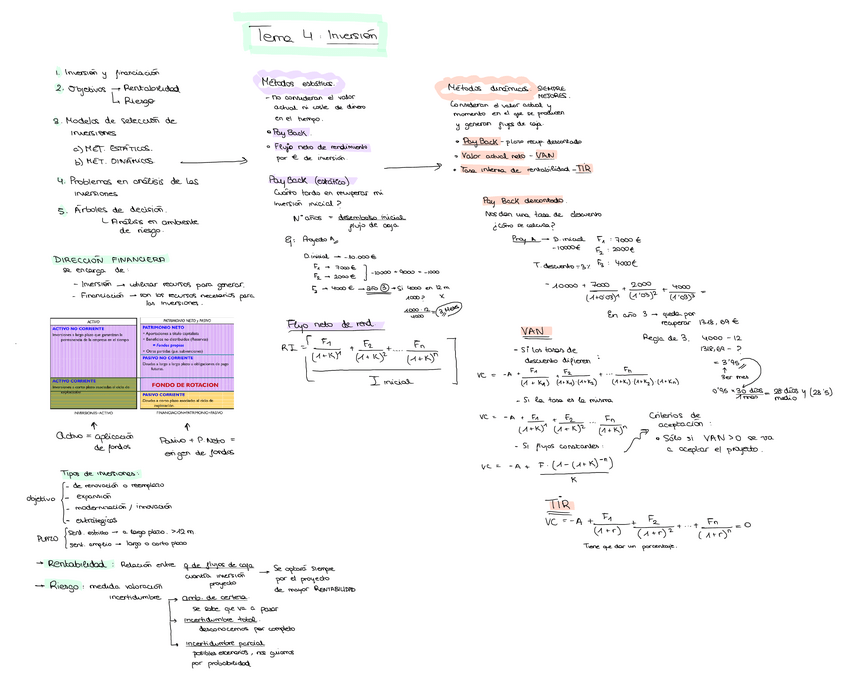 Tema 4: Inversión
1. Inversión y financiación
2. Objetivos → Rentabilidad
↳ Riesgo
3. Modelos de selección de
inversiones
a) MET. ESTÁTICOS.
b) MET. DINÁMICOS
4. Problemas en análisis de las
inversiones
5. Árboles de decisión.
↳ Análisis en ambiente
de riesgo.
DIRECCIÓN FINANCIERA
se encarga de:
- Inversión → utilizar recursos para generar.
- Financiación → son los recursos necesarios para
las inversiones.
ACTIVO
ACTIVO NO CORRIENTE
ACTIVO CORRIENTE
PATRIMONIO NETO y PASIVO
PATRIMONIO NETO
• Aportaciones a título capitalista
• Beneficios no distribuidos (Reservas)
• Fondos propios
• Otras partidas (ej. subvenciones)
PASIVO NO CORRIENTE
FONDO DE ROTACION
PASIVO CORRIENTE
INVERSIONES=ACTIVO
FINANCIACION=PATRIMONIO+PASIVO
Activo = aplicación
de fondos
Pasivo + P. Neto =
origen de fondos
Tipos de inversiones:
objetivo
- de renovación o reemplazo
- expansión
- modernización / innovación
- estratégicas
PLAZO
sent. estricto → a largo plazo. >12 m
sent. amplio → largo o corto plazo
→ Rentabilidad: Relación entre q de flujos de caja
cuantía inversión
proyecto
→ Se optará siempre
por el proyecto
de mayor RENTABILIDAD
→ Riesgo: medida valoración
incertidumbre
→ amb. de certeza
se sabe que va a pasar
→ incertidumbre total.
desconocemos por completo
→ incertidumbre parcial
posibles escenarios, nos guiamos
por probabilidad
Métodos estáticos.
- no consideran el valor
actual ni coste de dinero
en el tiempo.
• Pay Back.
• Flujo neto de rendimiento
por € de inversión
Pay Back (estático)
Cuánto tardo en recuperar mi
inversión inicial?
Nº años = desembolso inicial
flujo de caja
Ej: Proyecto A,
D.inicial → -10.000€
F1 → 7000€
F2 → 2000€
-10000 + 9000 = -1000
F3 → 4000€ → año 3 → Si 4000 en 12 m
1000? x
1000·12
4000
= 3 meses
Flujo neto de rend.
RI = [ F1/(1+K)^1 + F2/(1+K)^2 + ... Fn/(1+K)^n ]
I inicial
Métodos dinámicos SIEMPRE
MEJORES.
Consideran el valor actual y
momento en el que se producen
y generan flujos de caja.
• Pay Back - plazo recup descontado
• Valor actual neto - VAN
• Tasa interna de rentabilidad - TIR
Pay Back descontado
Nos dan una tasa de descuento
¿Cómo se calcula?
Proy A → D. inicial
-10000€
F1: 7000€
F2: 2000€
F3: 4000€
T. descuento = 3%
= -10000 + 7000/(1+0'03)^1 + 2000/(1'03)^2 + 4000/(1'03)^3 =
En año 3 → queda por
recuperar 1318,69 €
Regla de 3. 4000 - 12
1318,69 - ?
= 3'95
↑
3er mes
0'95 = 30 días
1 mes
= 28 días y (28'5)
medio
VAN
- Si las tasas de
descuento difieren:
VC = -A + F1/(1+K1) + F2/(1+K1)·(1+K2) + ... Fn/(1+K1)·(1+K2)·(1+Kn)
- Si la tasa es la misma
VC = -A + F1/(1+K)^1 + F2/(1+K)^2 ... Fn/(1+K)^n
- Si flujos constantes:
VC = -A + F·(1-(1+K)^-n)/K
Criterios de
aceptación:
• Sólo si VAN > 0 se va
a aceptar el proyecto.
TIR
VC = -A + F1/(1+r) + F2/(1+r)^2 + ... + Fn/(1+r)^n = 0
Tiene que dar un porcentaje.